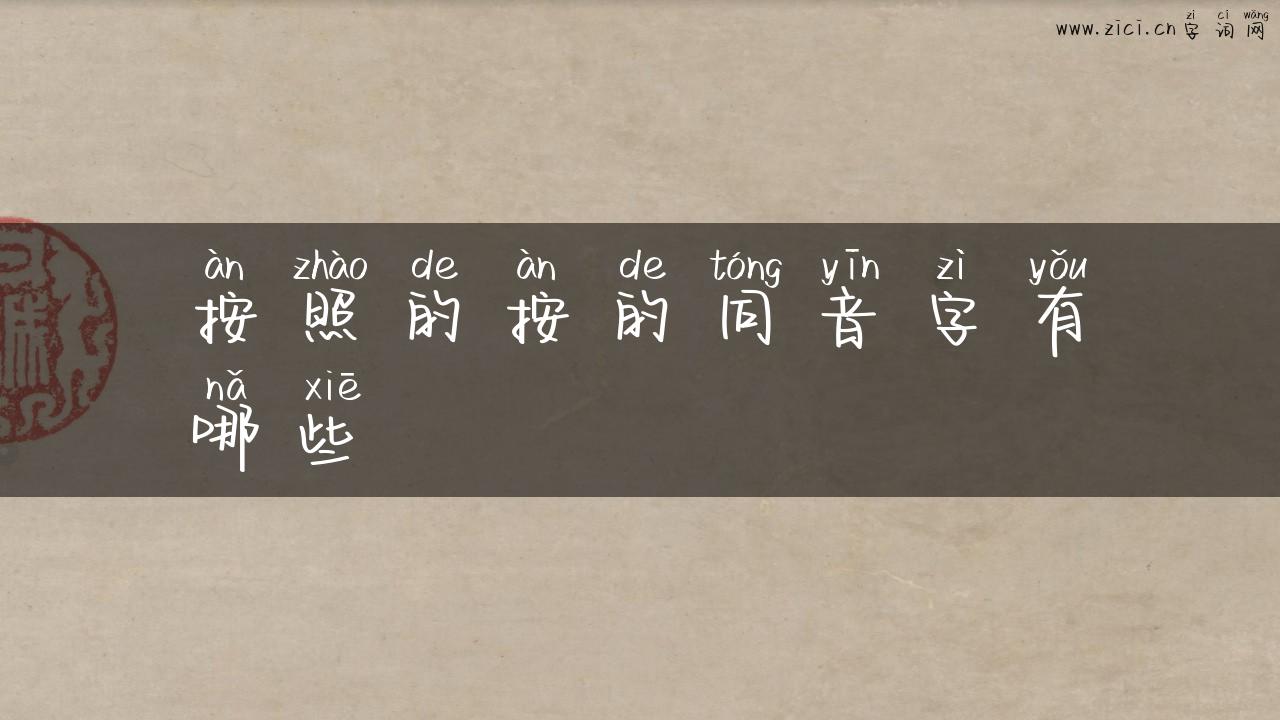 zì cí wǎng
www.zici.cn 字词网
àn zhào de àn de tóng yīn zì yǒu
按照的按的同音字有
nǎ xiē
哪些